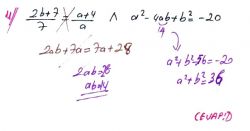 4) (2b+7)/7 = (a+4)/a ∧ a² - 4ab + b² = -20
2ab + 7a = 7a + 28
2ab = 28
ab = 14
a² + b² - 56 = -20
a² + b² = 36
(CEVAP:D)